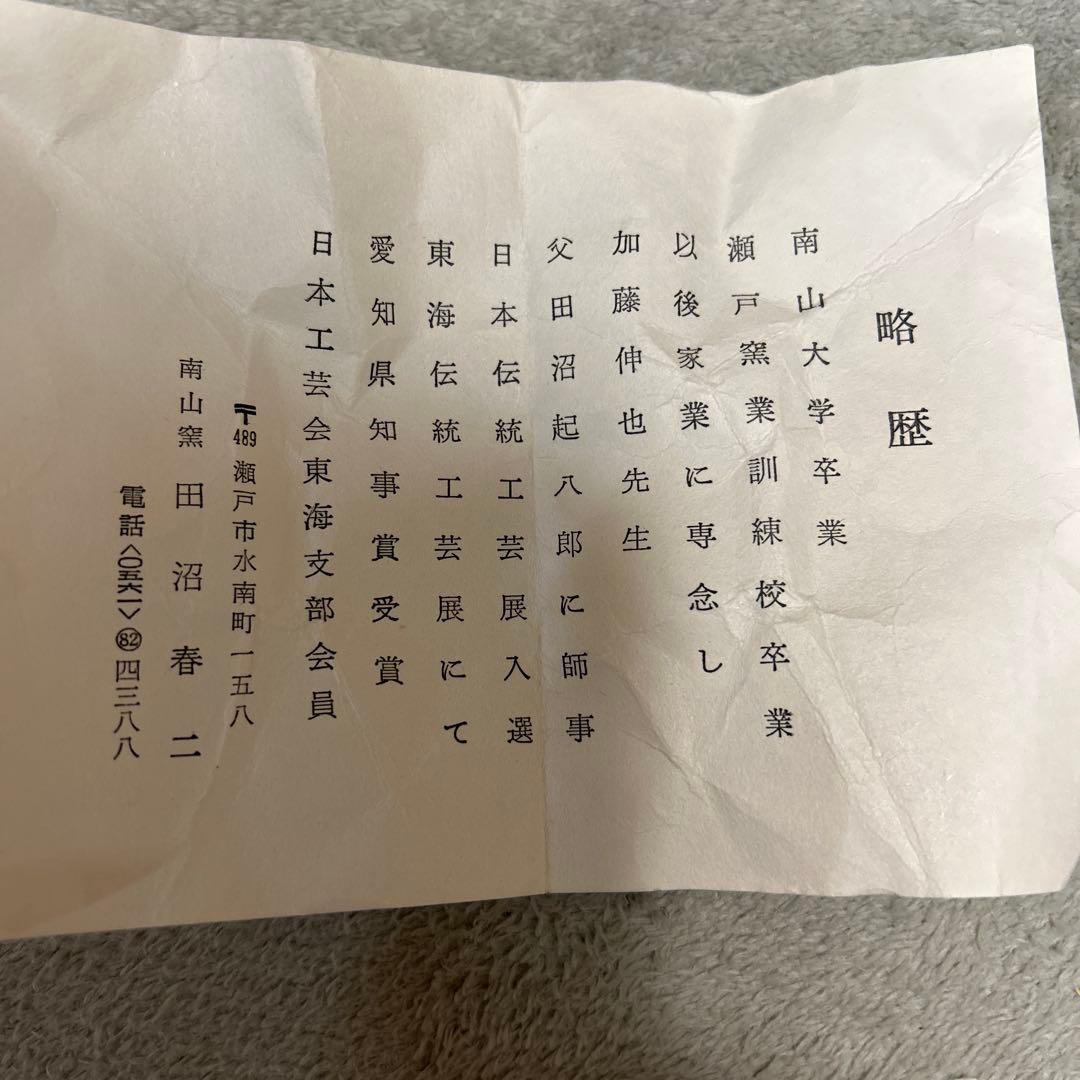 略歴
南山大学卒業
瀬戸窯業訓練校卒業
以後家業に専念し
加藤伸也先生
父田沼起八郎に師事
日本伝統工芸展入選
東海伝統工芸展にて
愛知県知事賞受賞
日本工芸会東海支部会員
〒489 瀬戸市水南町一五八
南山窯 田沼春二
電話〈〇五六一〉㊇四三八八